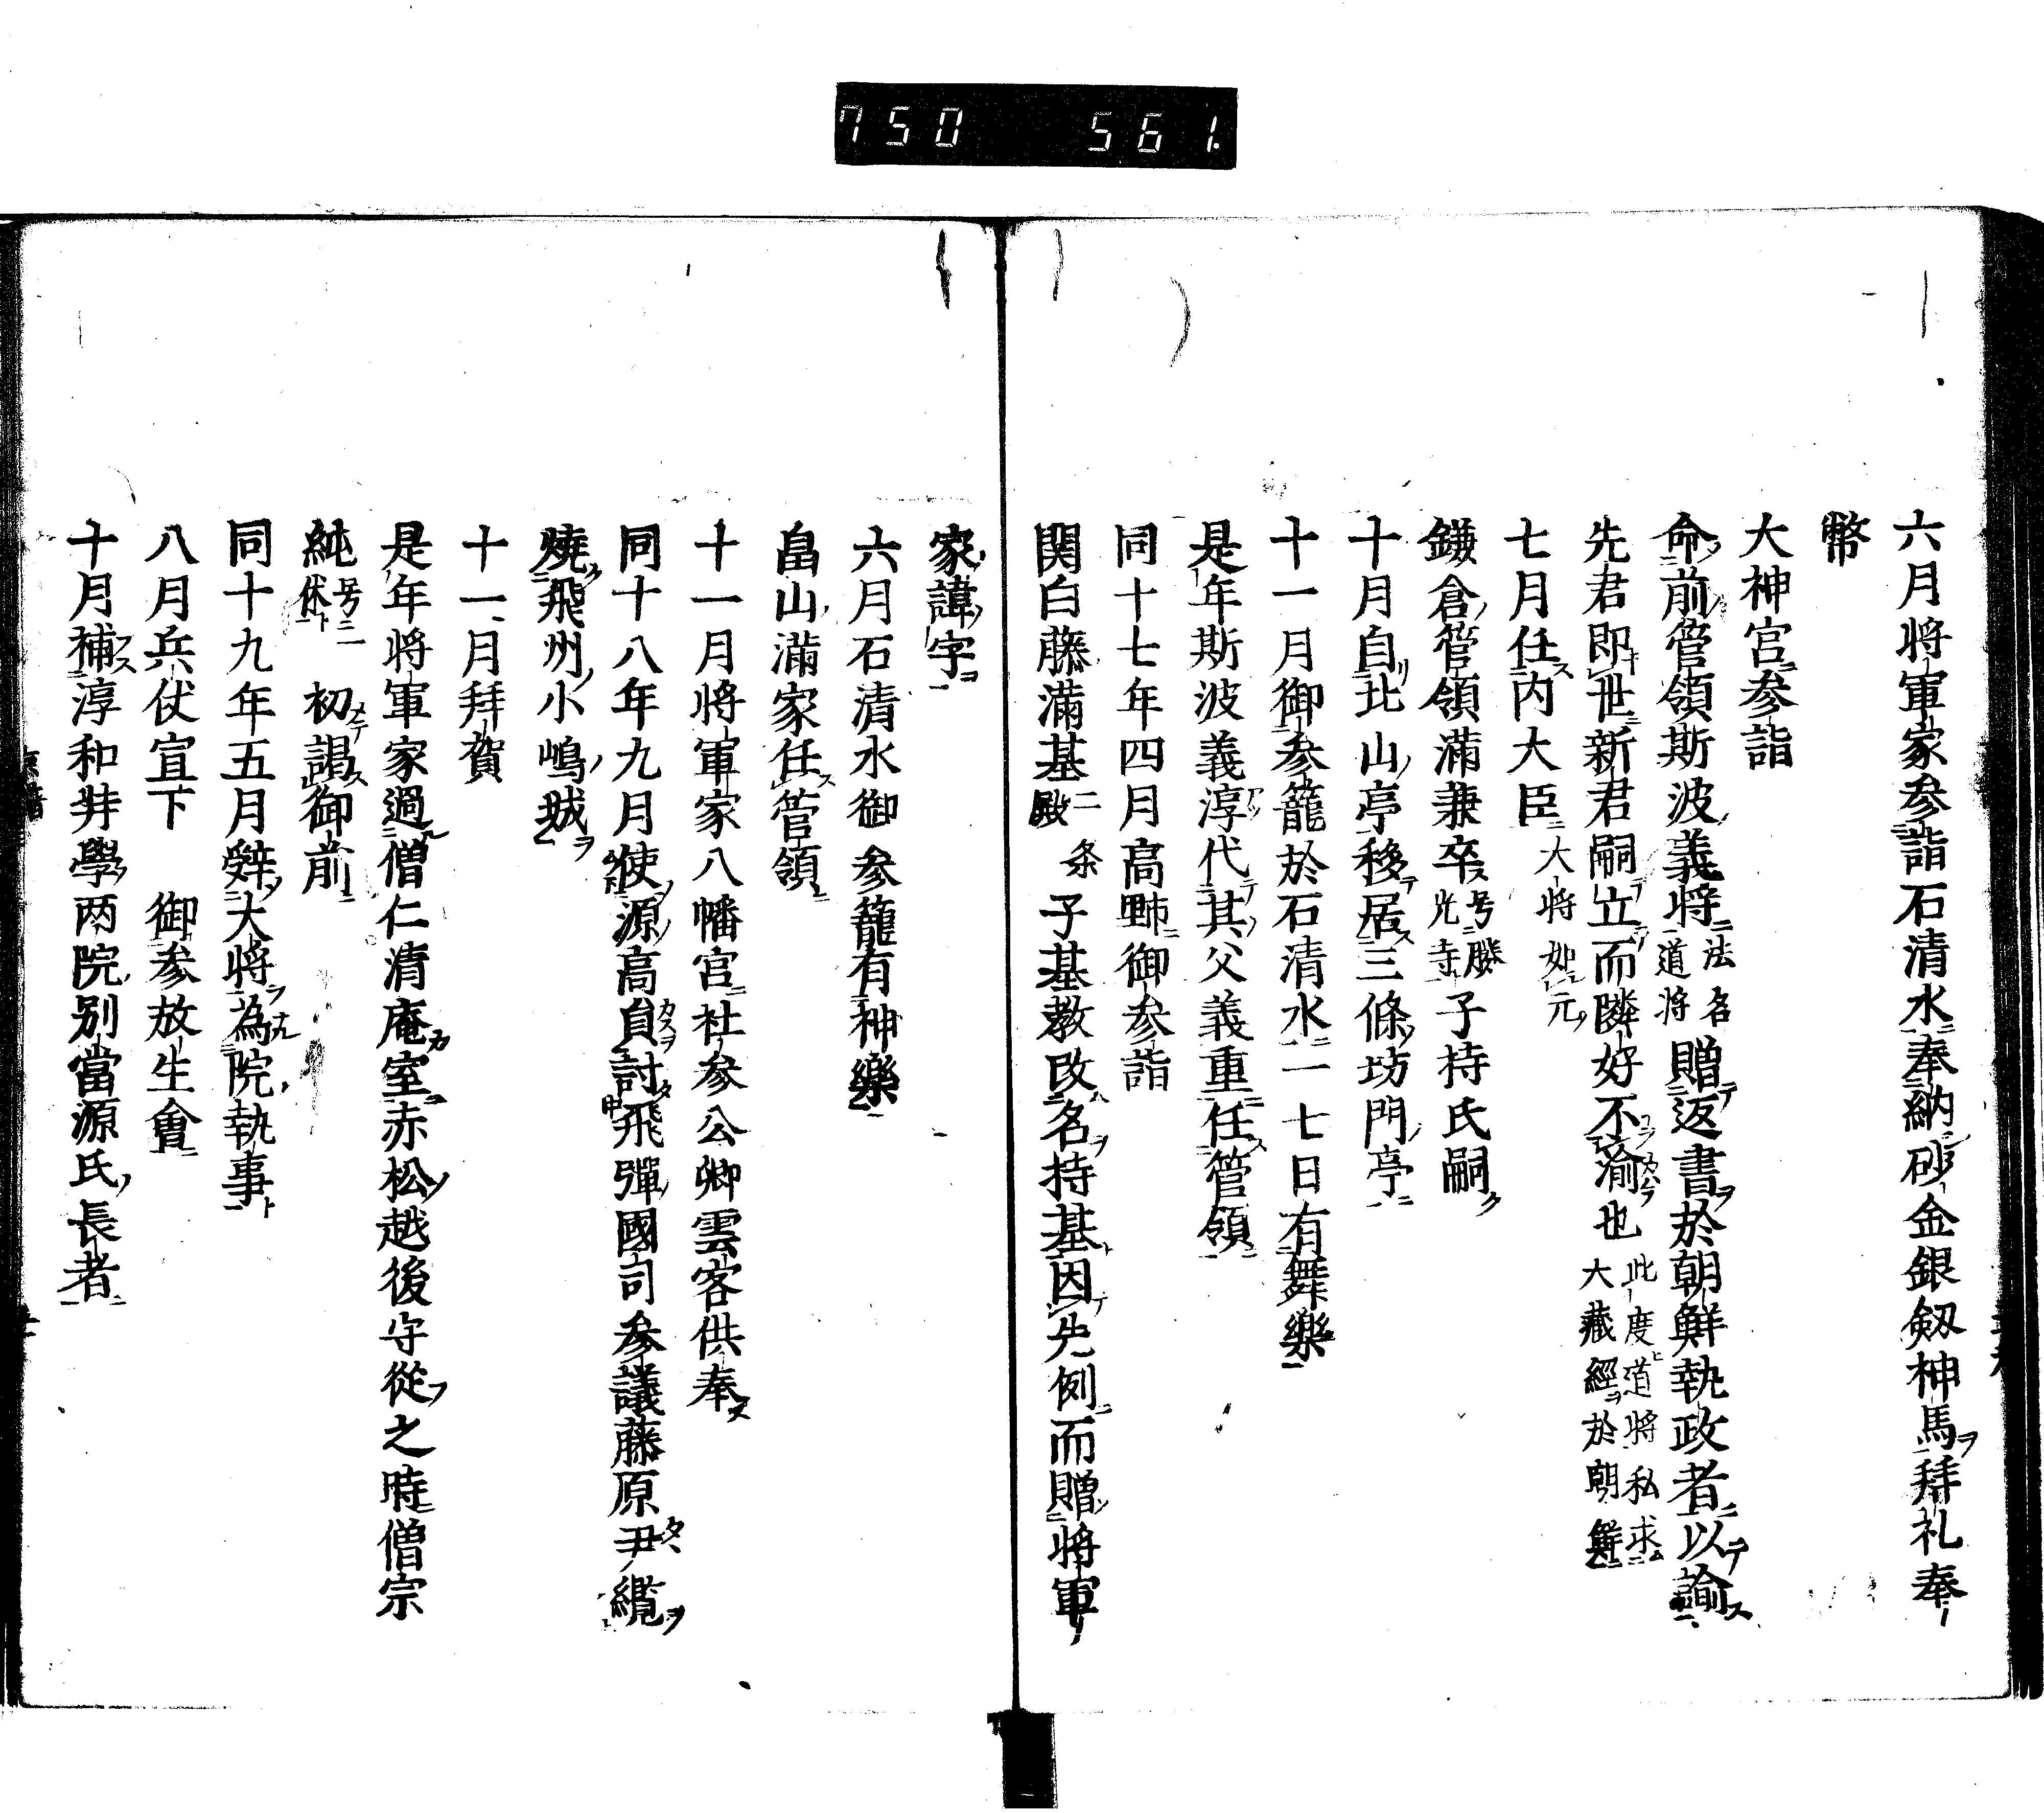 750 561.
六月将軍家参詣石清水奉納砂金銀剱神馬ヲ拜礼奉
幣
大神宮参詣
命前管領斯波義将法名道将贈返書於朝鮮執政者以諭
先君即世新君嗣立而隣好不渝也此度道将私求大藏經於朝鮮
七月任内大臣大将如元
鎌倉管領満兼卒号勝光寺子持氏嗣
十月自北山亭移居三條坊門亭
十一月御参籠於石清水一七日有舞樂
是年斯波義淳代其父義重任管領
同十七年四月高野御参詣
関白藤満基二条殿子基教改名持基因先例而贈将軍
家諱字
六月石清水御参籠有神樂
畠山満家任管領
十一月将軍家八幡宮社参公卿雲客供奉
同十八年九月使源高員討飛彈國司参議藤原尹纜
燒飛州小嶋城
十一月拜賀
是年将軍家過僧仁清庵室赤松越後守従之時僧宗
純号一休初謁御前
同十九年五月辞大将為院執事
八月兵仗宣下 御参放生會
十月補淳和弉學両院別當源氏長者